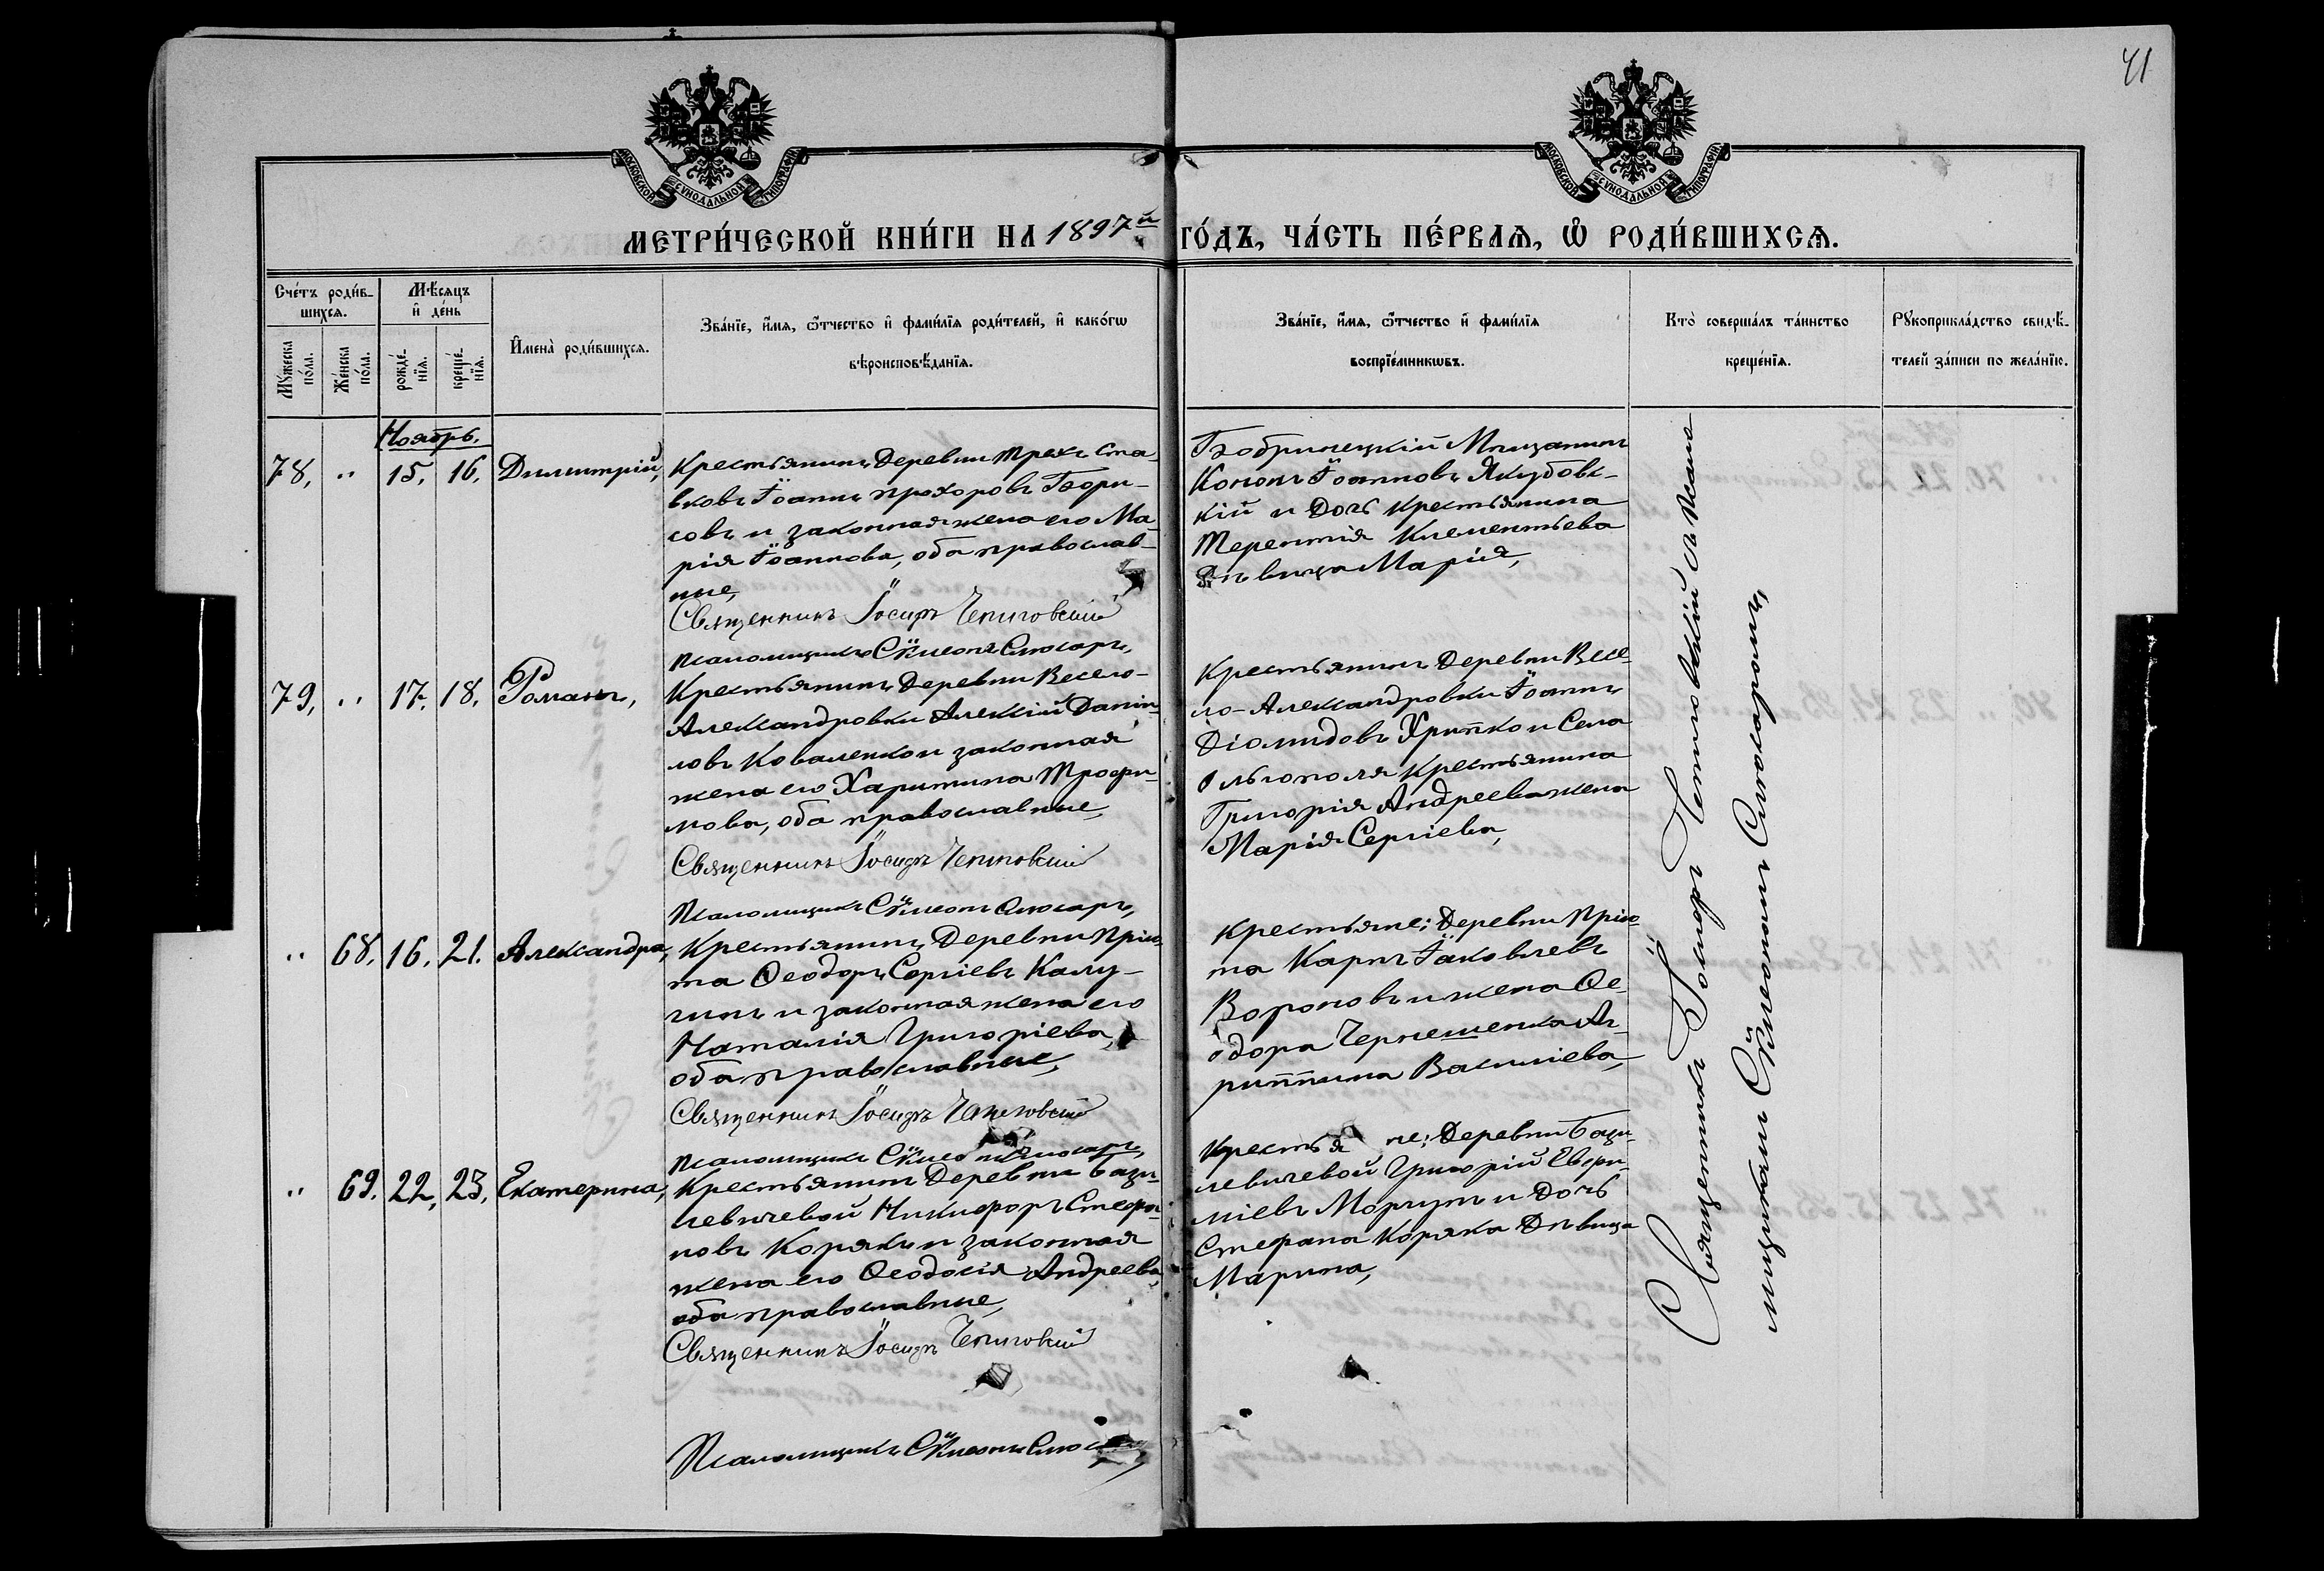 41
МОСКОВСКОЙ СѴНОДАЛЬНОЙ ТИПОГРАФІИ
МОСКОВСКОЙ СѴНОДАЛЬНОЙ ТИПОГРАФІИ
МЕТРИ́ЧЕСКОЙ КНИ́ГИ НА 1897й ГО́ДЪ, ЧА́СТЬ ПЕ́РВАЯ, Ѽ РОДИ́ВШИХСѦ.
Сче́тъ роди́в-
шихся.
Мꙋ́жеска по́ла.
Же́нска по́ла.
Мѣ́сяцъ и҆ де́нь
рожде́-нїя.
креще́-нїя.
И҆мена̀ роди́вшихся.
Зва́нїе, и҆́мя, ѻ҆́тчество и҆ фами́лїя роди́телей, и҆ како́гѡ
вѣроисповѣ́данїя.
Зва́нїе, и҆́мя, ѻ҆́тчество и҆ фами́лїя
воспрїе́мникѡвъ.
Кто̀ соверша́лъ та́инство
креще́нїя.
Рꙋкоприкла́дство свидѣ́-
телей за́писи по жела́нїю.
Ноябрь.
78, " 15. 16. Димитрій,
Крестьянинъ Деревни Трехъ Ста-
вковъ Іоаннъ Прохоровъ Бори-
совъ и законная жена его Ма-
рія Іоаннова, оба православ-
ные,
Священникъ Іосифъ
Псаломщикъ Сѵмеонъ Слюсарь,
Бобринецкій Мѣщанинъ
Кононъ Іоанновъ Якубовс-
кій и Дочь крестьянина
Терентія Климентьева
Дѣвица Марія,
79, " 17. 18. Романъ,
Крестьянинъ Деревни Весело-
Александровки Алексій Даніи-
ловъ Коваленко и законная
жена его Харитина Трофи-
мова, оба православные,
Священникъ Іосифъ
Псаломщикъ Сѵмеонъ Слюсарь,
Крестьянинъ Деревни Весе-
ло-Александровки Іоаннъ
Діомидовъ Хрипко и Села
Ольгополя Крестьянина
Григорія Андреева жена
Марія Сергіева,
" 68. 16. 21. Александра,
Крестьянинъ Деревни Прію-
та Ѳеодоръ Сергіевъ Калу-
гинъ и законная жена его
Наталія Григоріева,
оба православные,
Священникъ Іосифъ
Псаломщикъ Сѵмеонъ Слюсарь,
Крестьяне: Деревни Прію-
та Карпъ Іаковлевъ
Вороновъ и жена Ѳе-
одора Чернешенка Аг-
риппина Василіева,
" 69. 22. 23. Екатерина,
Крестьянинъ Деревни Бази-
левичевой Никифоръ Стефа-
новъ Корякъ и законная
жена его Ѳеодосія Андреева,
оба православные,
Священникъ Іосифъ
Псаломщикъ Сѵмеонъ
Крестьяне: Деревни Бази-
левичевой Григорій Евфи-
міевъ Моргунъ и Дочь
Стефана Коряка Дѣвица
Марина,
Священникъ Іосифъ съ Псало-
мщикомъ Сѵмеономъ Слюсаремъ,